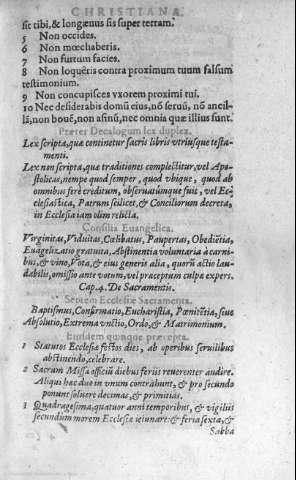 CHRISTIANA.
sit tibi, & longæuus sis super terram.
5 Non occides.
6 Non mœchaberis.
7 Non furtum facies.
8 Non loquêris contra proximum tuum falsum
testimonium.
9 Non concupisces vxorem proximi tui.
10 Nec desiderabis domũ eius, nõ seruũ, nõ ancil-
lã, non bouẽ, non asinũ, nec omnia quæ illius sunt.
Præter Decalogum lex duplex.
Lex scripta, quæ continetur sacris libris vtriusque testa-
menti.
Lex non scripta, quæ traditiones complectitur, vel Apo-
stolicas, nempe quod semper, quod vbique, quod ab
omnibus ferè creditum, obseruatúmque fuit, vel Ec-
clesiastica, Patrum scilicet, & Conciliorum decreta,
in Ecclesia iam olim relicta.
Consilia Euangelica.
Virginitas, Viduitas, Cœlibatus, Paupertas, Obediẽtia,
Euagelizatio gratuita, Abstinentia voluntaria à carni-
bus, & vino, Vota, & eius generis alia, quorũ actio lau-
dabilis, omissio ante votum, vel præceptum culpa expers.
Cap. 4. De Sacramentis.
Septem Ecclesiæ Sacramenta.
Baptismus, Confirmatio, Eucharistia, Pœnitẽtia, siue
Absolutio, Extrema vnctio, Ordo, & Matrimonium.
Eiusdem quinque præcepta.
1 Statutos Ecclesiæ festos dies, ab operibus seruilibus
abstinendo, celebrare.
2 Sacrum Missæ officiũ diebus feriis reuerenter audire.
Aliqui hæc duo in vnum contrahunt, & pro secundo
ponunt soluere decimas, & primitias.
3 Quadragesima, quatuor anni temporibus, & vigiliis
secundum morem Ecclesiæ ieiunare: & feria sexta, &
Sabba